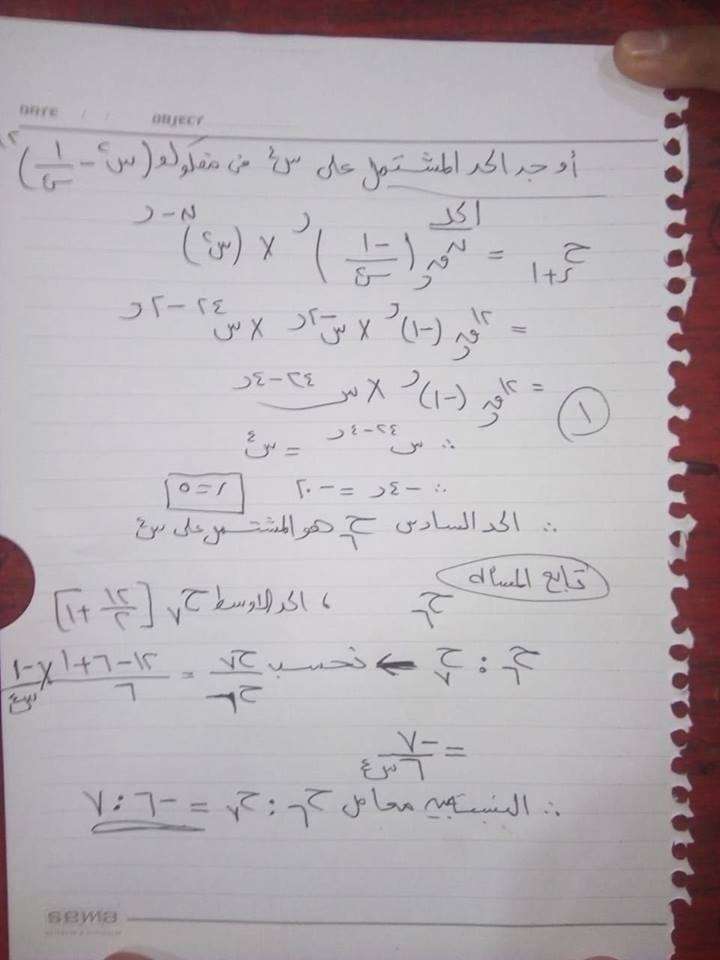 DATE / / OBJECT
أوجد الحد المشتمل على س٤ من مفكوك (س٢ − ١/س٢)١٢
الحد
ح ر+١ = نقر (−١/س٢)ر × (س٢)ن−ر
= ١٢قر (−١)ر × س−٢ر × س٢٤−٢ر
= ١٢قر (−١)ر × س٢٤−٤ر
١
∴ س٢٤−٤ر = س٤
∴ −٤ر = −٢٠ ر=٥
∴ الحد السادس ح٦ هو المشتمل على س٤
تابع المسألة
ح٦ ، الحد الاوسط ح٧ [١٢/٢ + ١]
ح٦ : ح٧ ← نحسب ح٧/ح٦ = ١٢−٦+١/٦ × −١/س٤
= −٧/٦س٤
∴ النسبة بين معامل ح٦ : ح٧ = −٦ : ٧
sema